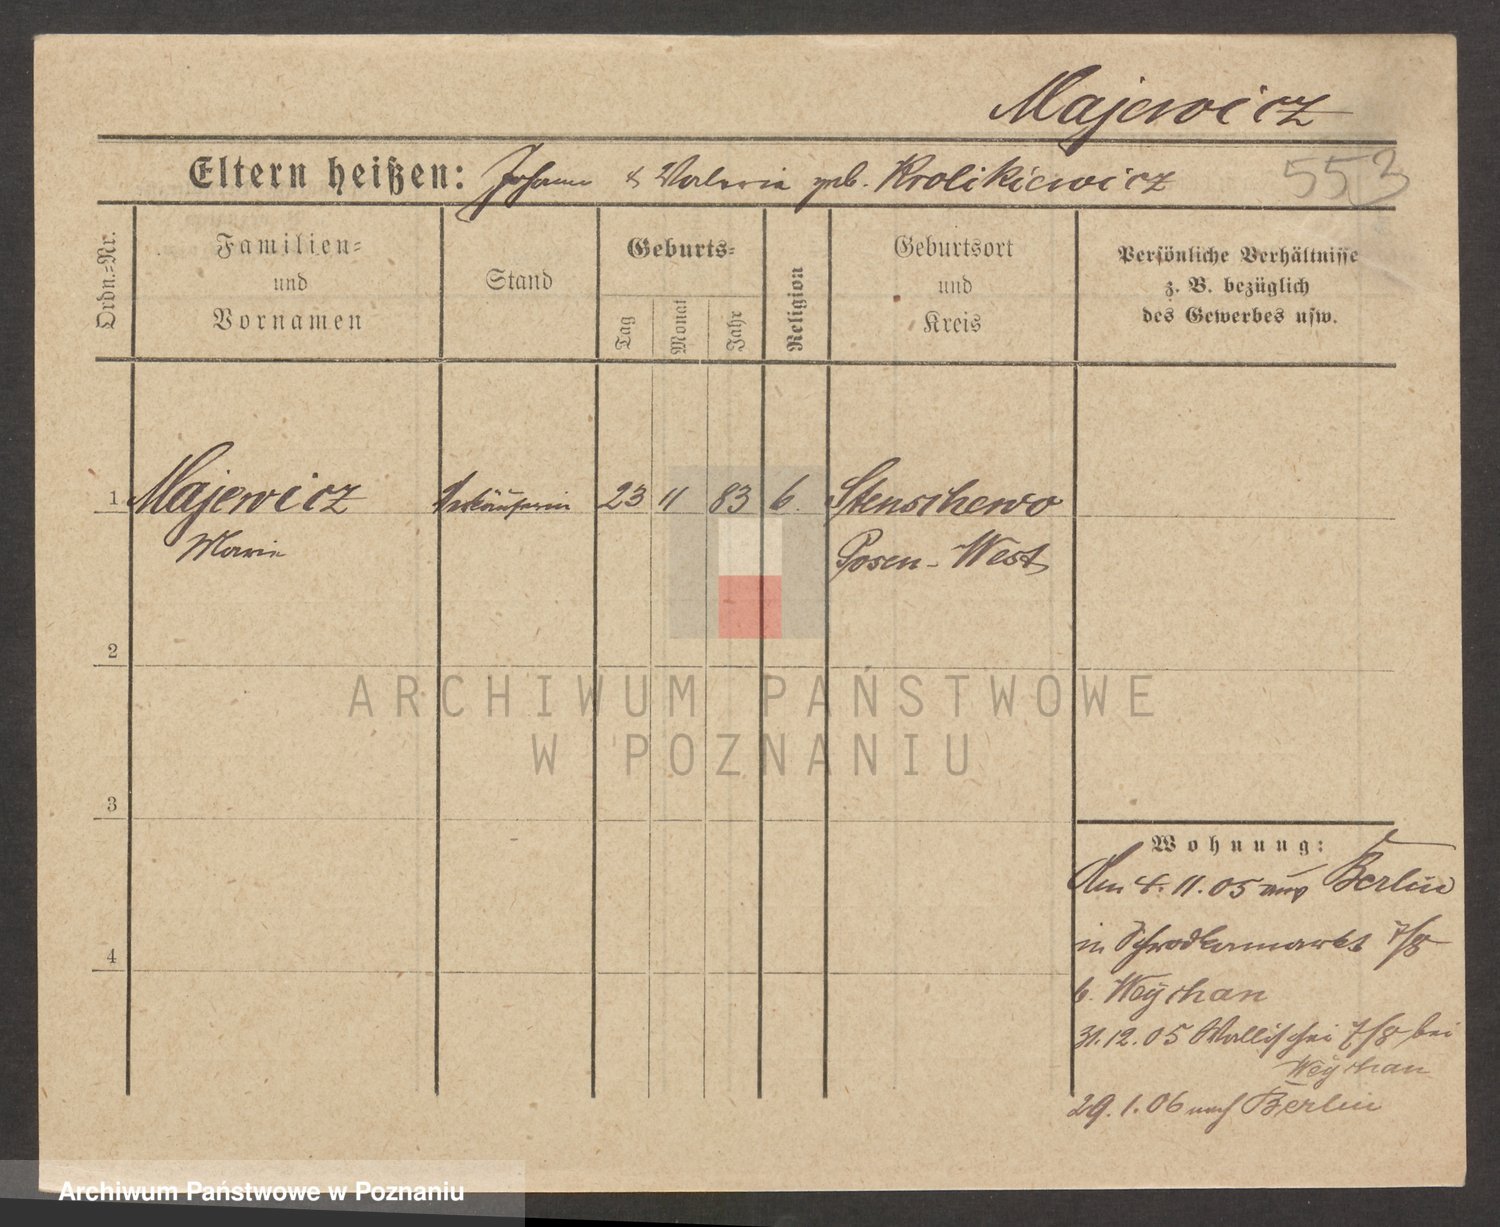 Majewicz
Eltern heißen: Johann & Valeria geb. Krolikiewicz
553
Ordn.-Nr.
Familien-
und
Vornamen
Stand
Geburts-
Tag
Monat
Jahr
Religion
Geburtsort
und
Kreis
Persönliche Verhältnisse
z. B. bezüglich
des Gewerbes usw.
1 Majewicz Verkäuferin 23 11 83 Stenschewo
Marie Posen-West
2
ARCHIWUM PAŃSTWOWE
W POZNANIU
3
Wohnung:
Am 4.11.05 aus Berlin
in Schrodkamarkt 7/8
b. Weychan
4
31.12.05 Wallischei 7/8 bei
Weychan
29.1.06 nach Berlin
Archiwum Państwowe w Poznaniu